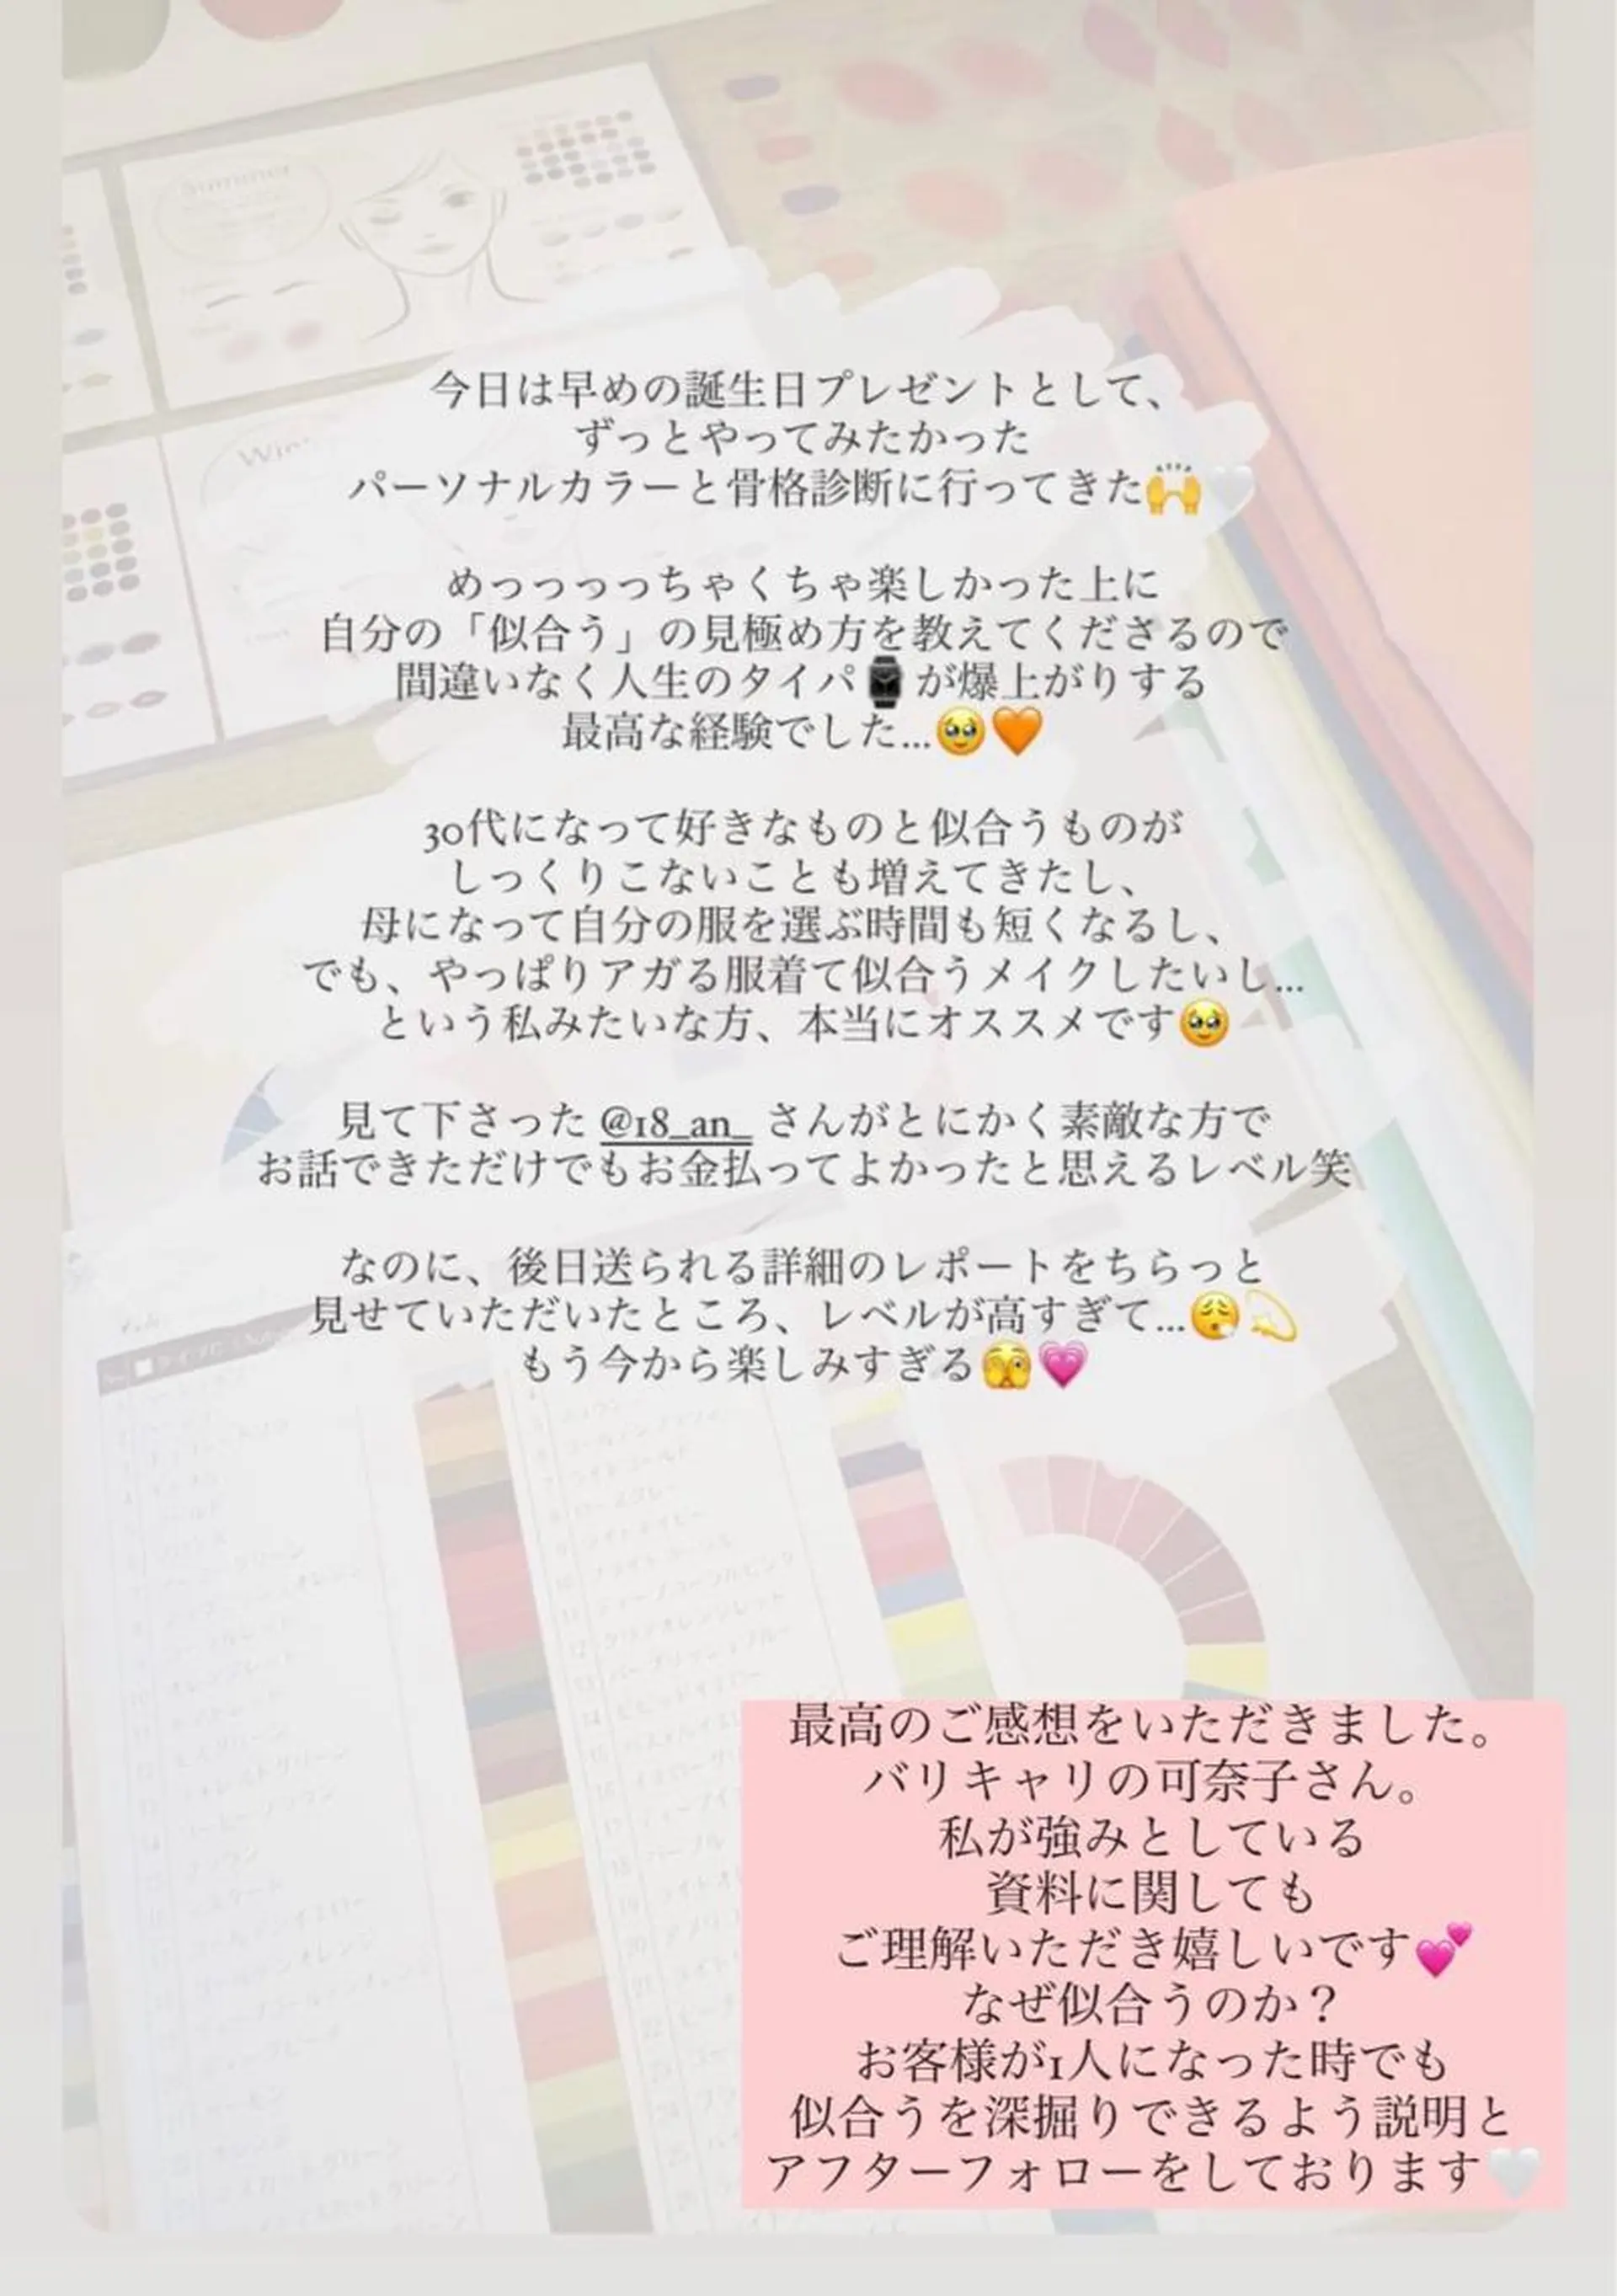 Summer
今日は早めの誕生日プレゼントとして、
ずっとやってみたかった
パーソナルカラーと骨格診断に行ってきた🙌🤍
めっっっっちゃくちゃ楽しかった上に
自分の「似合う」の見極め方を教えてくださるので
間違いなく人生のタイパ⌚が爆上がりする
最高な経験でした...🥹🧡
30代になって好きなものと似合うものが
しっくりこないことも増えてきたし、
母になって自分の服を選ぶ時間も短くなるし、
でも、やっぱりアガる服着て似合うメイクしたいし...
という私みたいな方、本当にオススメです🥹
見て下さった @18_an_ さんがとにかく素敵な方で
お話できただけでもお金払ってよかったと思えるレベル笑
なのに、後日送られる詳細のレポートをちらっと
見せていただいたところ、レベルが高すぎて...😮‍💨💫
もう今から楽しみすぎる🫣💗
最高のご感想をいただきました。
バリキャリの可奈子さん。
私が強みとしている
資料に関しても
ご理解いただき嬉しいです💕
なぜ似合うのか？
お客様が1人になった時でも
似合うを深掘りできるよう説明と
アフターフォローをしております🤍